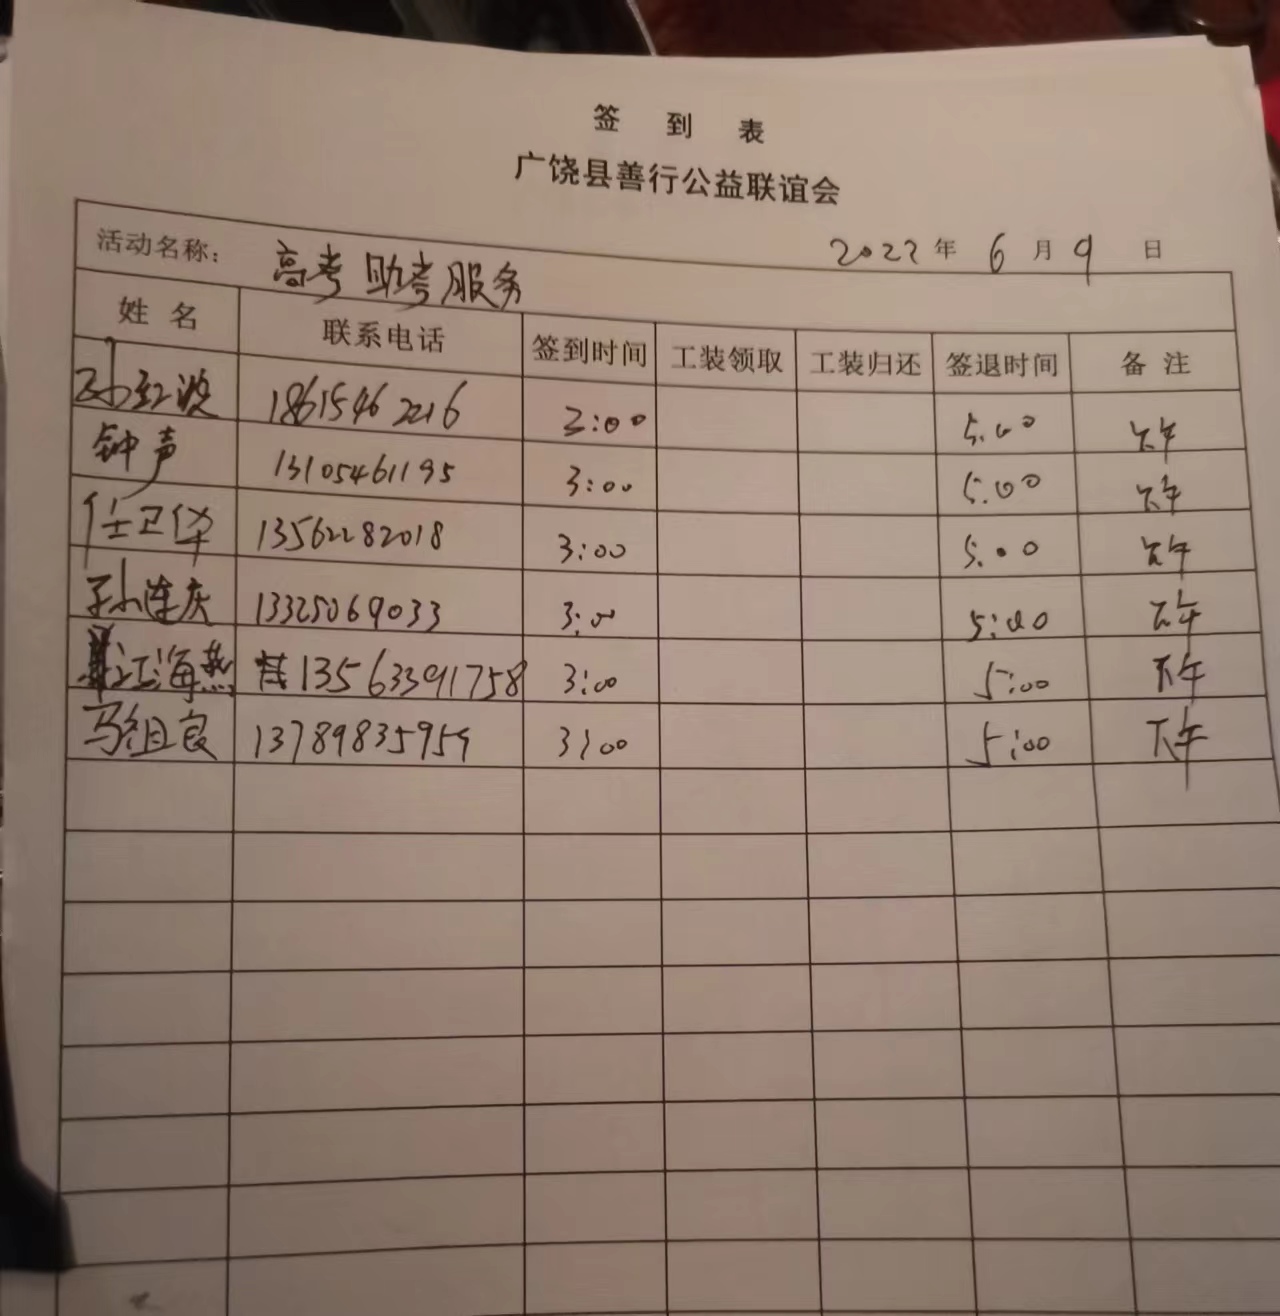 签 到 表
广饶县善行公益联谊会
活动名称: 高考助考服务 2022年 6月 9日
姓名 联系电话 签到时间 工装领取 工装归还 签退时间 备注
孙红波 18615462216 3:00 5:00 下午
钟声 13105461195 3:00 5:00 下午
任卫华 13562282018 3:00 5:00 下午
孙连庆 13325069033 3:00 5:00 下午
江海燕 13563391758 3:00 5:00 下午
马组良 13789835959 3:00 5:00 下午